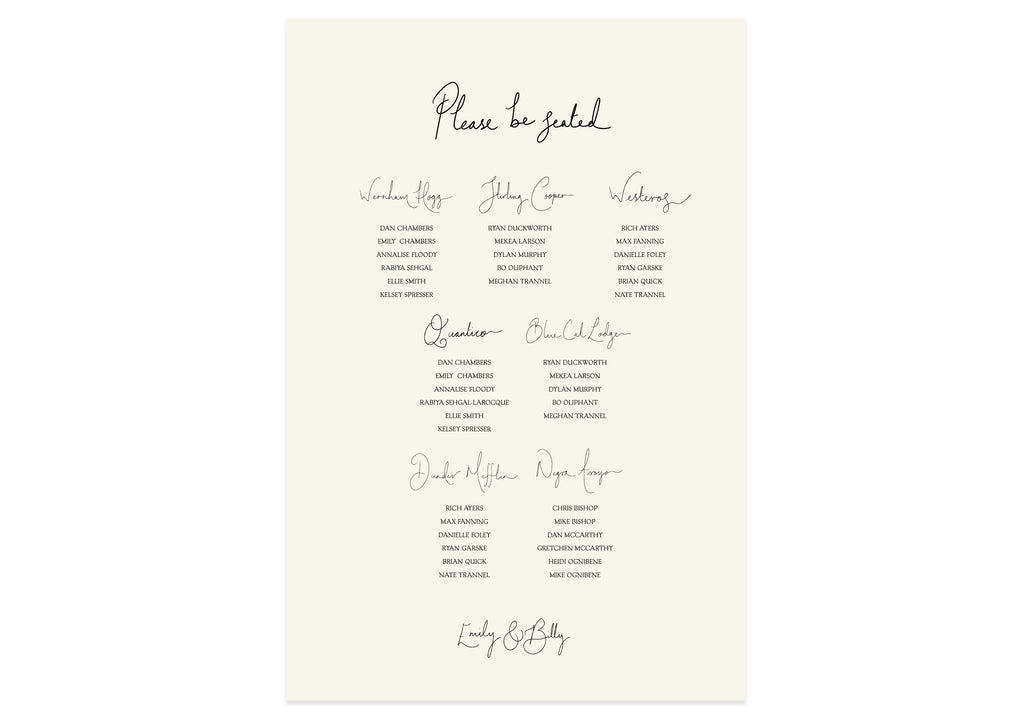 Please be seated
Wernham Hogg
DAN CHAMBERS
EMILY CHAMBERS
ANNALISE FLOODY
RABIYA SEHGAL
ELLIE SMITH
KELSEY SPRESSER
Stirling Cooper
RYAN DUCKWORTH
MEKEA LARSON
DYLAN MURPHY
BO OLIPHANT
MEGHAN TRANNEL
Westeros
RICH AYERS
MAX FANNING
DANIELLE FOLEY
RYAN GARSKE
BRIAN QUICK
NATE TRANNEL
Quantico
DAN CHAMBERS
EMILY CHAMBERS
ANNALISE FLOODY
RABIYA SEHGAL-LAROCQUE
ELLIE SMITH
KELSEY SPRESSER
Blue Cat Lodge
RYAN DUCKWORTH
MEKEA LARSON
DYLAN MURPHY
BO OLIPHANT
MEGHAN TRANNEL
Dunder Mifflin
RICH AYERS
MAX FANNING
DANIELLE FOLEY
RYAN GARSKE
BRIAN QUICK
NATE TRANNEL
Negra Arroyo
CHRIS BISHOP
MIKE BISHOP
DAN MCCARTHY
GRETCHEN MCCARTHY
HEIDI OGNIBENE
MIKE OGNIBENE
Emily & Billy